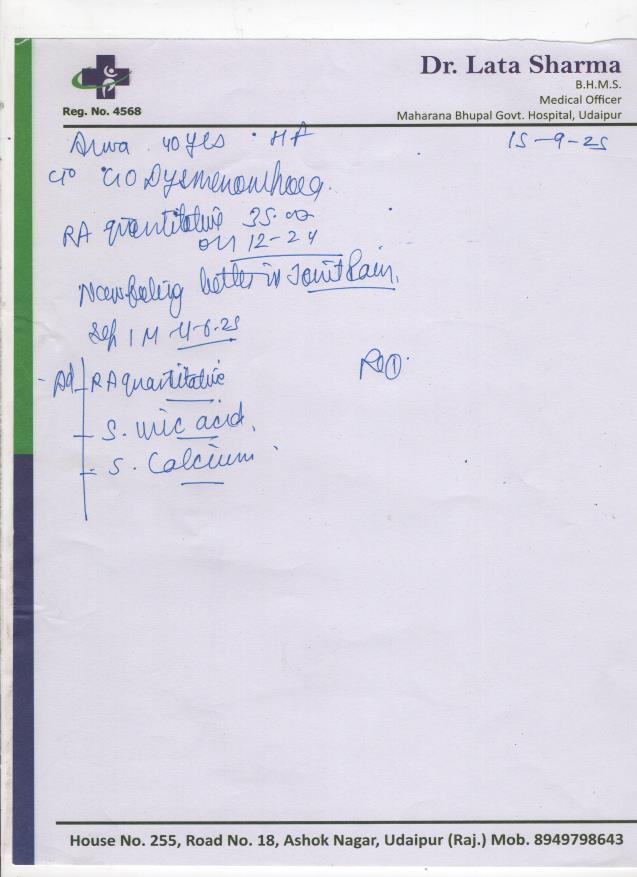 Dr. Lata Sharma
B.H.M.S.
Medical Officer
Maharana Bhupal Govt. Hospital, Udaipur
Reg. No. 4568
Arwa 40 yrs
15-9-25
C/o Dysmenorrhoea.
RA quantitative 35.00
on 12-24
Now feeling better in Joint Pain.
Sep 1 M 4-6-25
Ad RA quantitative
- S. uric acid.
- S. Calcium
House No. 255, Road No. 18, Ashok Nagar, Udaipur (Raj.) Mob. 8949798643